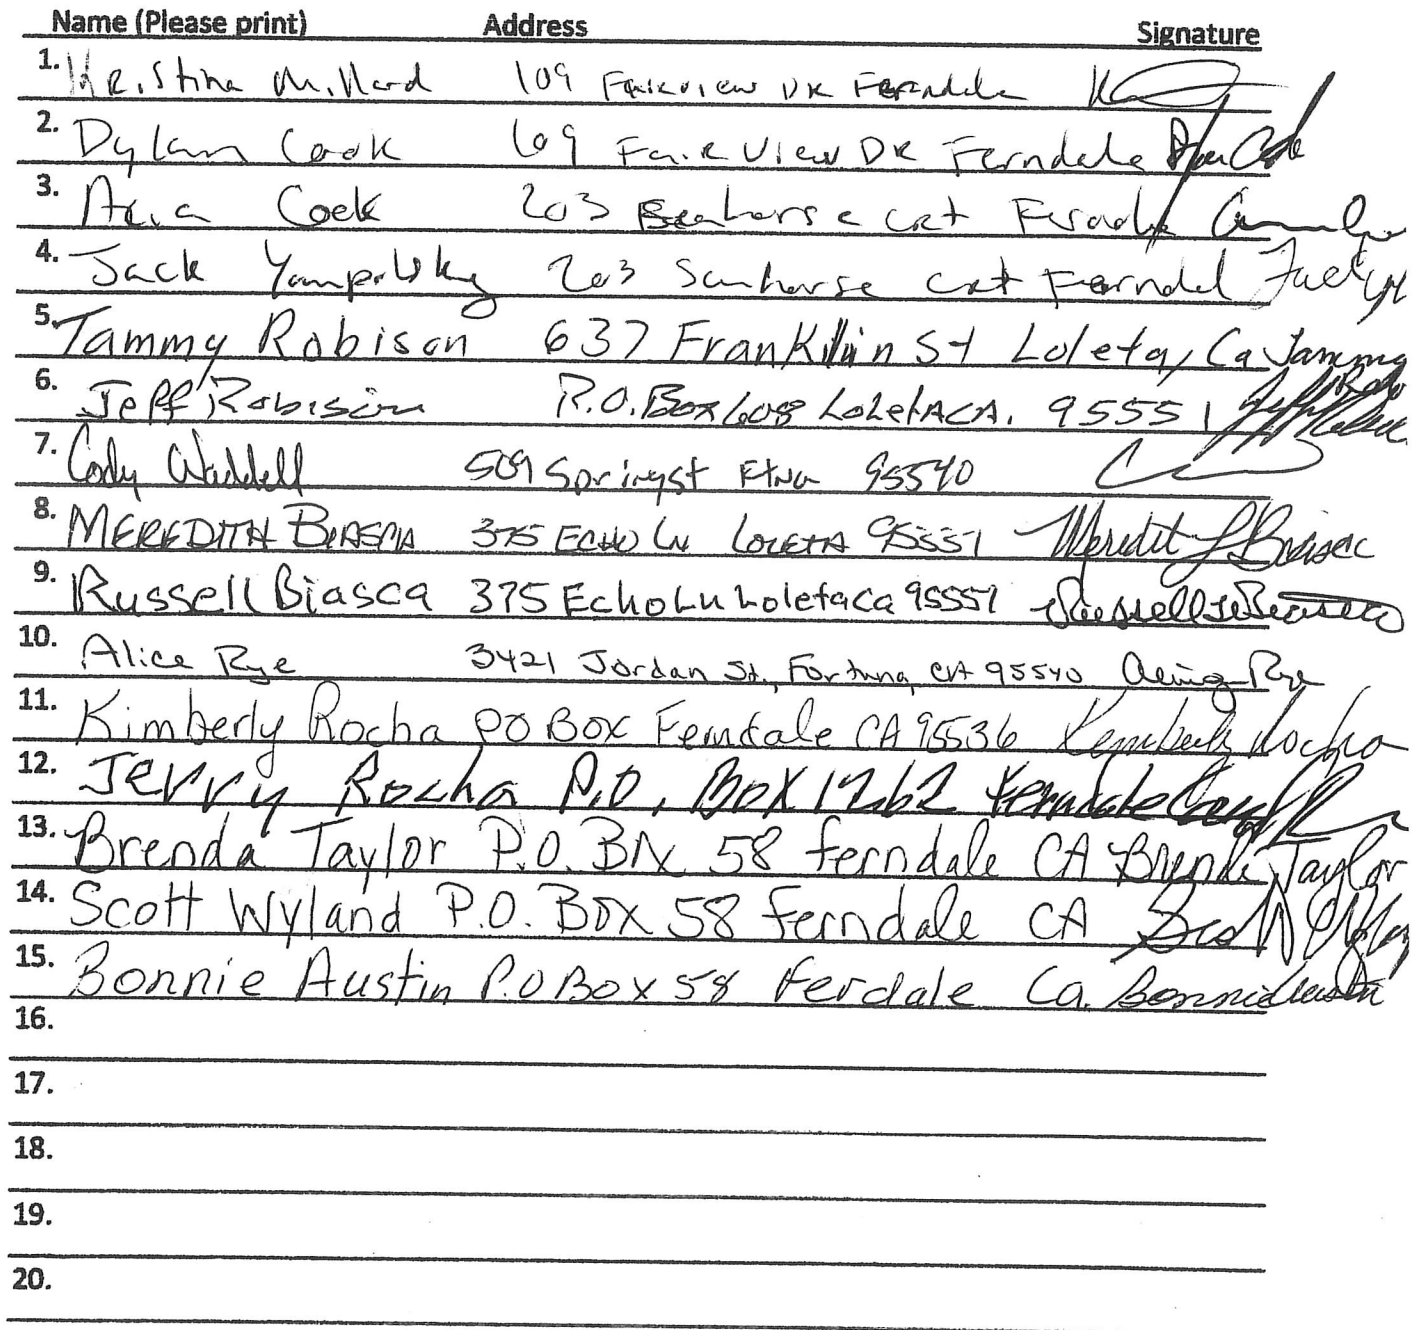 Name (Please print) Address Signature
1. Kristina Millard 109 Fairview DR Ferndale
2. Dylan Cook 109 Fairview DR Ferndale
3. Cook 203 Seahorse crt
4. Jack Yampolsky 203 crt Ferndal Jack
5. Tammy Robison 637 Franklin St Loleta, Ca Tammy
6. Jeff Robison P.O. Box 608 LoLetA CA. 95551 Jeff Robison
7. Cody Waddell 509 Spring st Ftna 95540
8. MEREDITH BIASCA 375 ECHO LN LOLETA 95551 Meredith L Biasca
9. Russell Biasca 375 Echo Ln Loleta Ca 95551 Russell Biasca
10. Alice Rye 3421 Jordan St., Fortuna, CA 95540 Rye
11. Kimberly Rocha PO BOX Ferndale CA 95536 Kimberly Rocha
12. Jerry Rocha P.O. Box 1262 Ferndale
13. Brenda Taylor P.O. Box 58 Ferndale CA Brenda Taylor
14. Scott Wyland P.O. Box 58 Ferndale CA Scott Wyland
15. Bonnie Austin P.O Box 58 Ferdale Ca. Bonnie Austin
16.
17.
18.
19.
20.